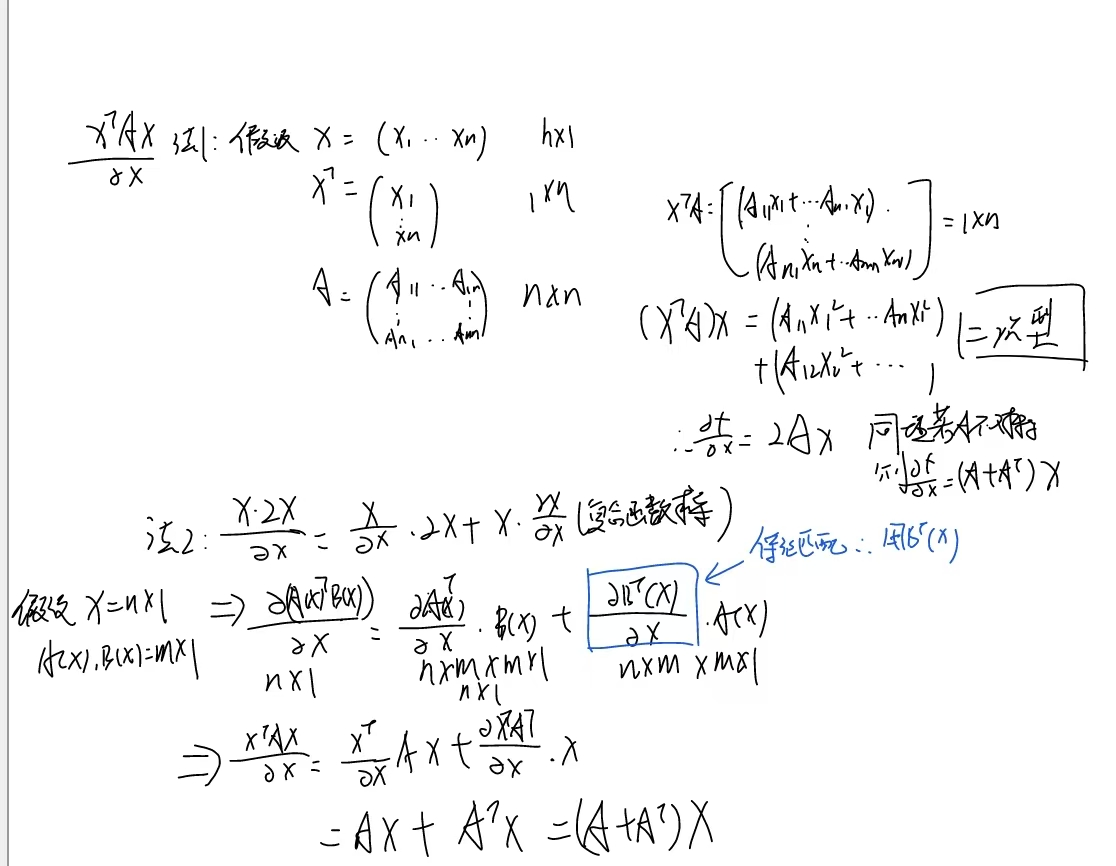 x^T A x / ∂x 法1: 假设 x = (x₁ ·· xₙ) n×1
x^T = (x₁ ⋮ xₙ) 1×n
A = (A₁₁ ·· A₁ₙ ⋮ ⋮ Aₙ₁ ... Aₙₙ) n×n
x^T A = [(A₁₁x₁+···Aₙ₁x₁). ⋮ (Aₙ₁xₙ+··Aₙₙxₙ)] = 1×n
(x^T A)x = (A₁₁x₁²+··Aₙx₁²)
+(A₁₂x₂²+··· )
二次型
∴ ∂f/∂x = 2Ax 同理若A不对称
则 ∂f/∂x = (A+A^T)x
法2: x·2x / ∂x = x/∂x · 2x + x · 2x/∂x (复合函数求导)
保证匹配∴用B^T(x)
假设 x=n×1 ⇒ ∂(A(x)^T B(x)) / ∂x = ∂A(x)^T / ∂x · B(x) + ∂B^T(x) / ∂x · A(x)
A(x),B(x)=m×1
n×1 n×m×m×1 n×m×m×1
n×1
⇒ x^T A x / ∂x = x^T/∂x A x + ∂x^T A^T / ∂x · x
= Ax + A^T x = (A+A^T) x